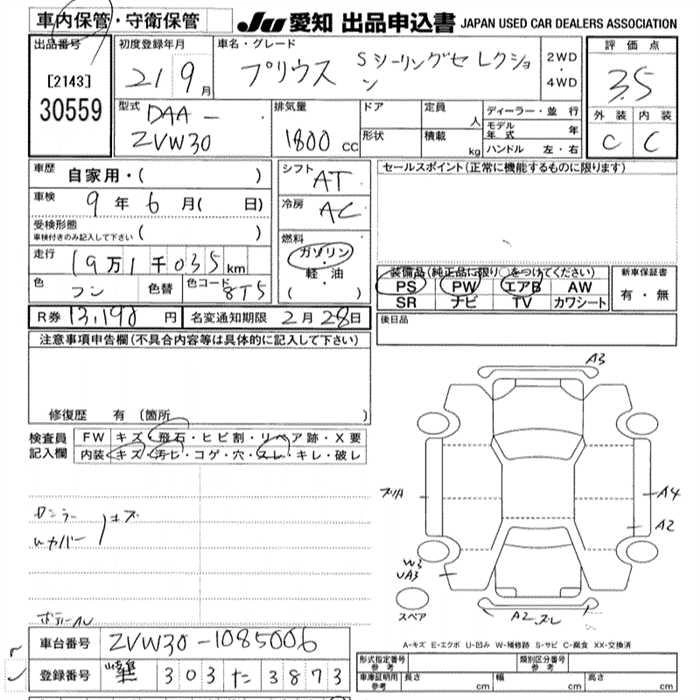 車内保管・守衛保管
JU 愛知 出品申込書 JAPAN USED CAR DEALERS ASSOCIATION
出品番号
[2143]
30559
初度登録年月
21 9月
車名・グレード
プリウス Sツーリングセレクション
2WD・4WD
評価点
3.5
外装 内装
C C
型式
DAA-
ZVW30
排気量
1800cc
ドア
形状
定員 人
積載 kg
ディーラー・並行
モデル年式 年
ハンドル 左・右
車歴 自家用・( )
車検 9年6月( 日)
受検形態
車検付きのみ記入して下さい ( )
走行 19万1千035km
色 色替 色コード 8T5
シフト AT
冷房 AC
燃料
ガソリン
軽・油
( )
セールスポイント(正常に機能するものに限ります)
装備品(純正品に限り○をつけてください)
PS PW エアB AW
SR ナビ TV カワシート
新車保証書
有・無
R券 13,190円 名変通知期限 2月28日
後日品
注意事項申告欄(不具合内容等は具体的に記入して下さい)
修復歴 有 (箇所 )
検査員記入欄
FW キズ・飛石・ヒビ割・リペア跡・X要
内装 キズ・汚れ・コゲ・穴・スレ・キレ・破レ
A3
A4
A2
W3
UA3
スペア
A2 スレ
A-キズ E-エクボ U-凹み W-補修跡 S-サビ C-腐食 XX-交換済
車台番号 ZVW30-1085006
登録番号 303 た 3873
形式指定番号 参考
類別区分番号 参考
車庫証明用 参考
長さ cm 幅 cm 高さ cm